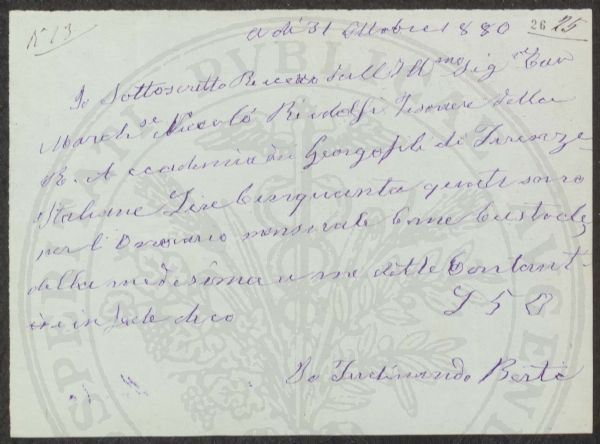 N° 13
26 25
A dì 31 Ottobre 1880
Io Sottoscritto Ricevo dall Ill.mo Sig.re Cav
March.se Niccolò Ridolfi Tesoriere della
R. Accademia dei Georgofili di Firenze
Italiane Lire Cinquanta queste sono
per l'Onorario mensuale Come Custode
della medesima a me dette Contant-
i in fede dico L 50
Io Ferdinando Berti